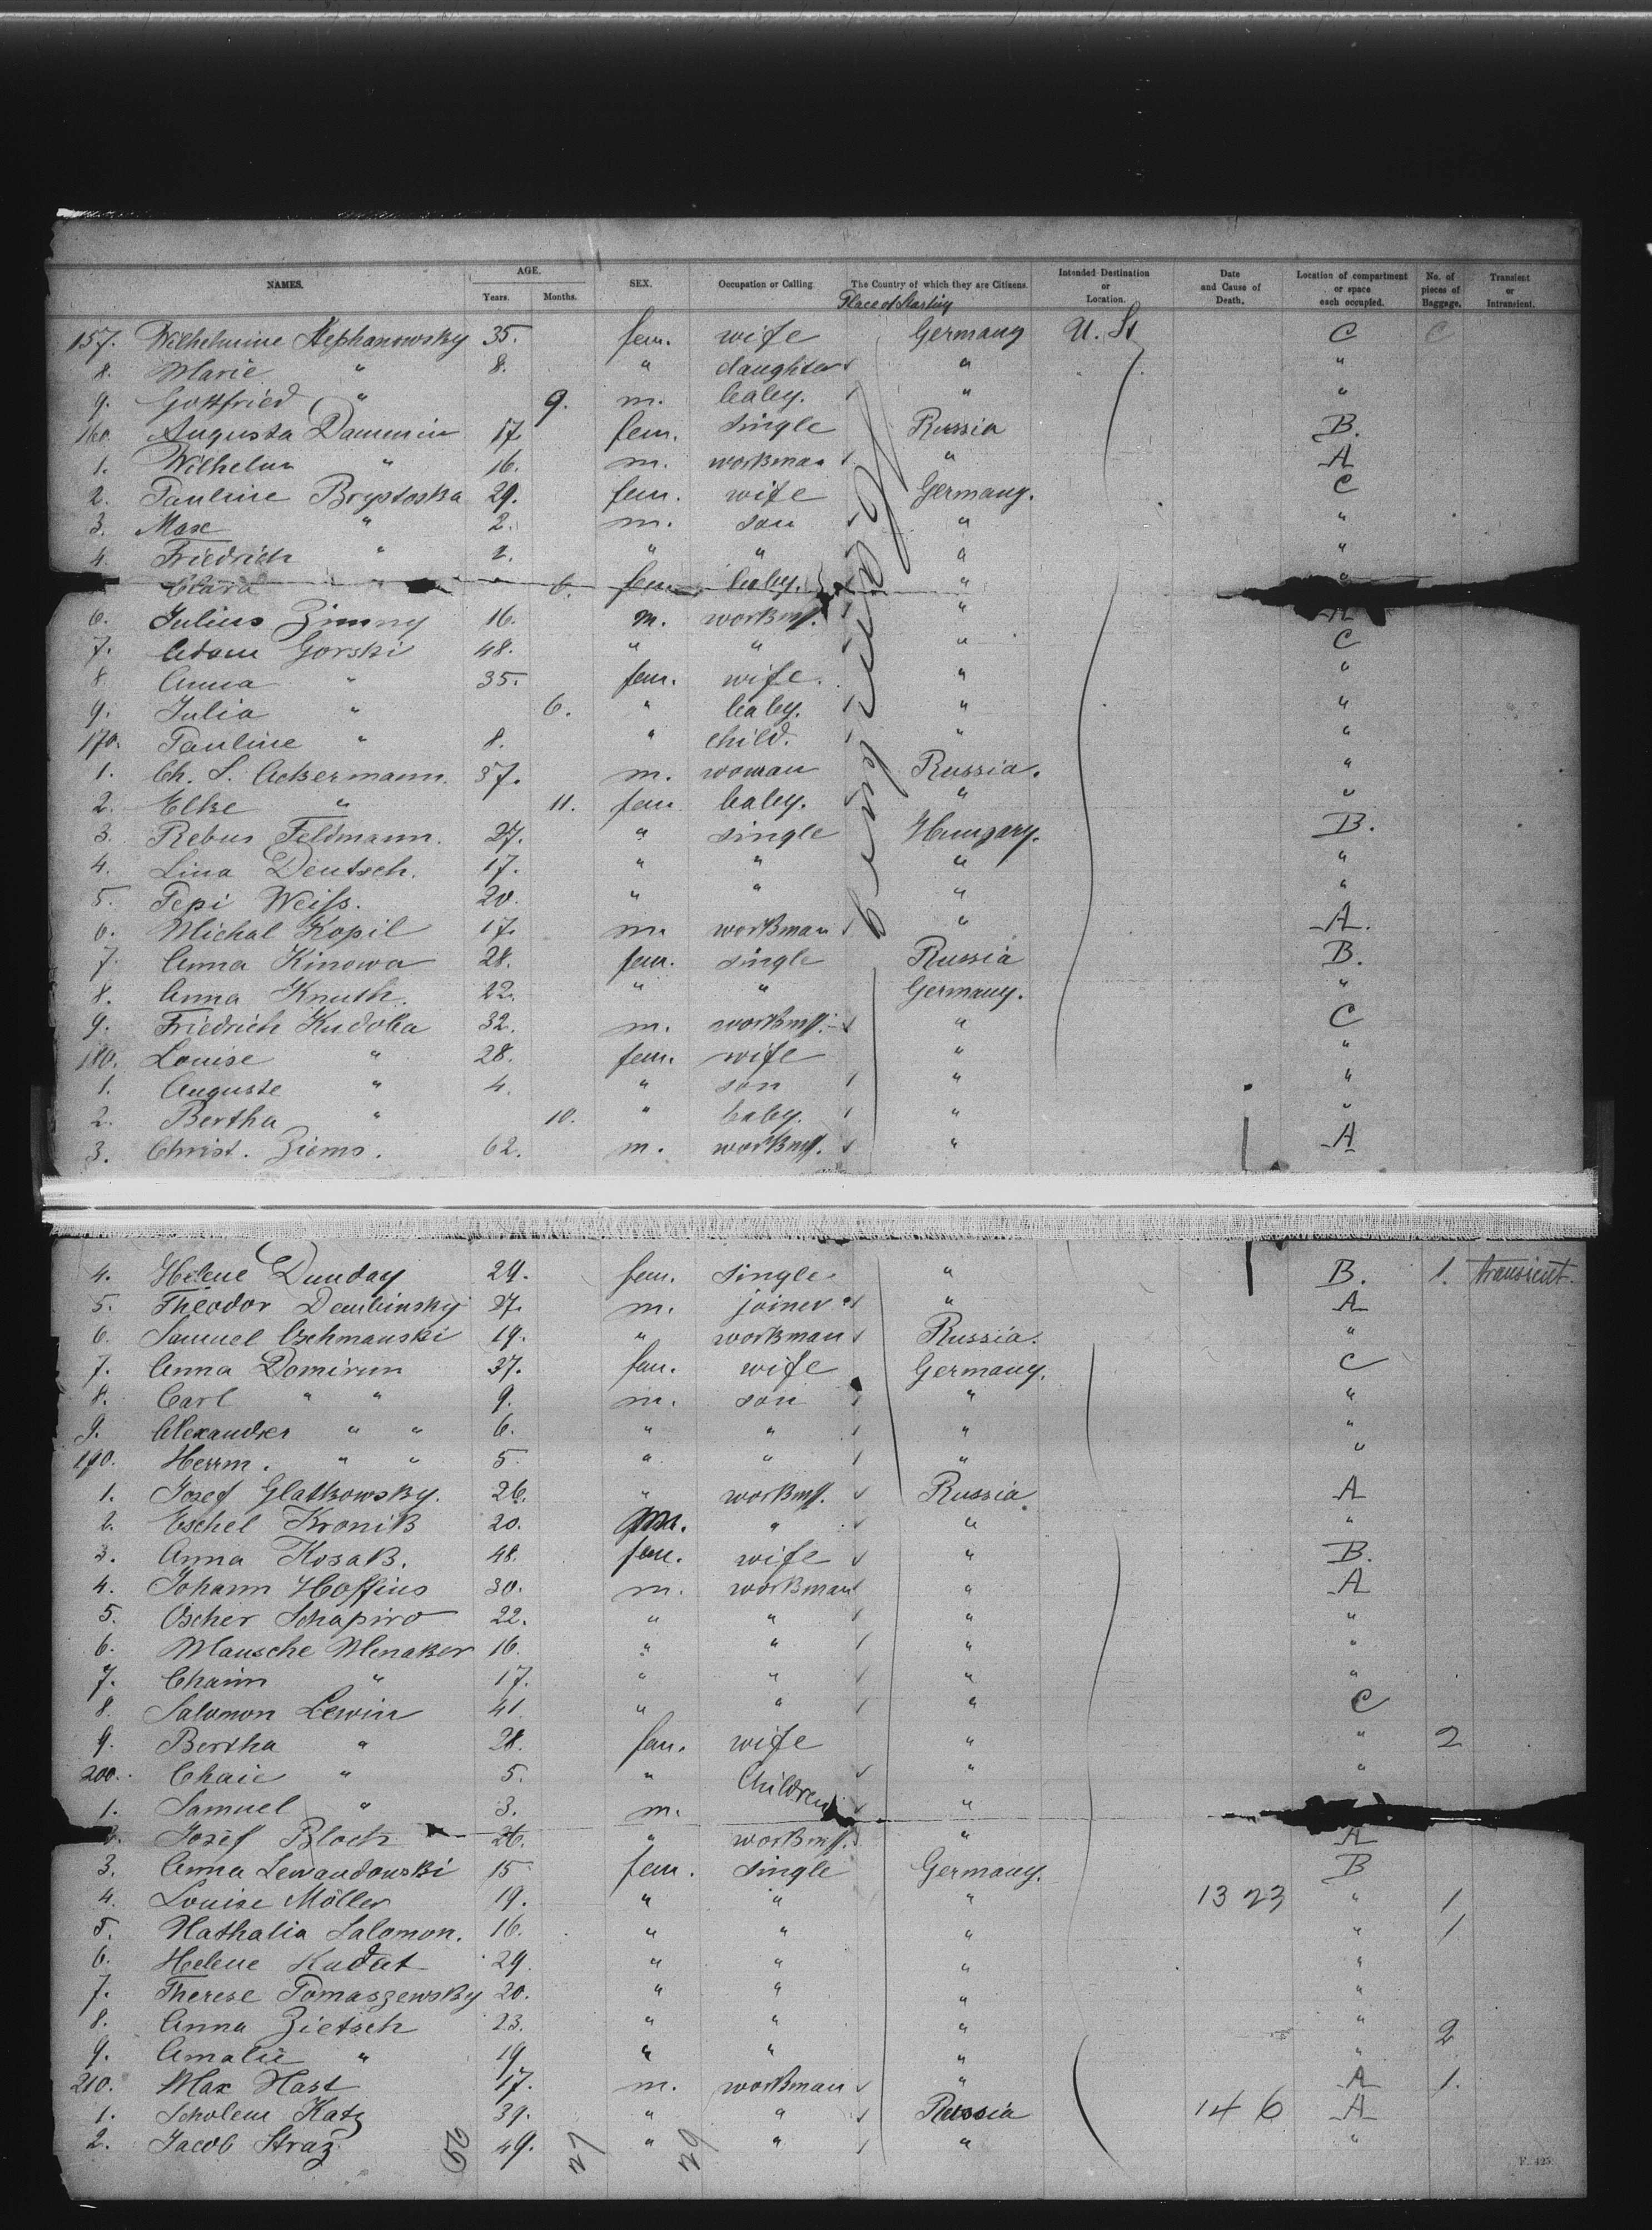 NAMES. AGE. Years. Months. SEX. Occupation or Calling. The Country of which they are Citizens. Intended Destination or Location. Date and Cause of Death. Location of compartment or space each occupied. No. of pieces of Baggage. Transient or Intransient.
Place of Starting
157. Wilhelmine Stephanowsky 35. fem. wife Germany U. St C C
8. Marie " 8. " daughter " "
9. Gottfried " 9. m. baby. " "
160. Augusta Dammin 17. fem. single Russia B.
1. Wilhelm " 16. m. workman " A
2. Pauline Brystoska 29. fem. wife Germany. C
3. Max " 2. m. son " "
4. Friedrich " 2. " " " "
Clara " 6. fem. baby. " "
6. Julius Zimny 16. m. workm. " A
7. Adam Gorski 48. " " " C
8. Anna " 35. fem. wife. " "
9. Julia " 6. " baby. " "
170. Pauline " 8. " child. " "
1. Ch. S. Ackermann. 37. m. woman Russia. "
2. Elke " 11. fem baby. " "
3. Rebus Feldmann. 27. " single Hungary. B.
4. Lina Deutsch. 17. " " " "
5. Pepi Weiss. 20. " " " "
6. Michal Kopil 17. m. workman " A.
7. Anna Kinowa 28. fem. single Russia B.
8. Anna Knuth. 22. " " Germany. "
9. Friedrich Kudoba 32. m. workm. " C
180. Louise " 28. fem. wife " "
1. Auguste " 4. " son " "
2. Bertha " 10. " baby. " "
3. Christ. Ziems. 62. m. workm. " A
4. Helene Dunday 29. fem. single " B. 1. transient.
5. Theodor Dembinsky 27. m. joiner " A
6. Samuel Oschmanski 19. " workman Russia. "
7. Anna Domirun 37. fem. wife Germany. C
8. Carl " " 9. m. son " "
9. Alexander " " 6. " " " "
190. Herrm. " " 5. " " " "
1. Josef Glatkowsky. 26. " workm. Russia A
2. Eschel Kronik 20. m. " " "
3. Anna Kosak. 48. fem. wife " B.
4. Johann Hoffins 30. m. workman " A
5. Oscher Schapiro 22. " " " "
6. Mausche Menaker 16. " " " "
7. Chaim " 17. " " " "
8. Salomon Lewin 41. " " " C
9. Bertha " 28. fem. wife " " 2
200. Chaie " 5. " Children " "
1. Samuel " 3. m. "
Josef Bloch 26. " workm. " A
3. Anna Lewandowski 15 fem. single Germany. B
4. Louise Möller 19. " " " 13 23 " 1
5. Nathalia Salomon. 16. " " " " 1
6. Helene Kudat 29. " " " "
7. Therese Tomaszewsky 20. " " " "
8. Anna Zietsch 23. " " " " 2
9. Amalie " 19 " " " "
210. Max Hast 17. m. workman " A 1.
1. Scholem Katz 39. " " Russia 14 6 A
2. Jacob Straz 49. " " " "
27 29
F. 425